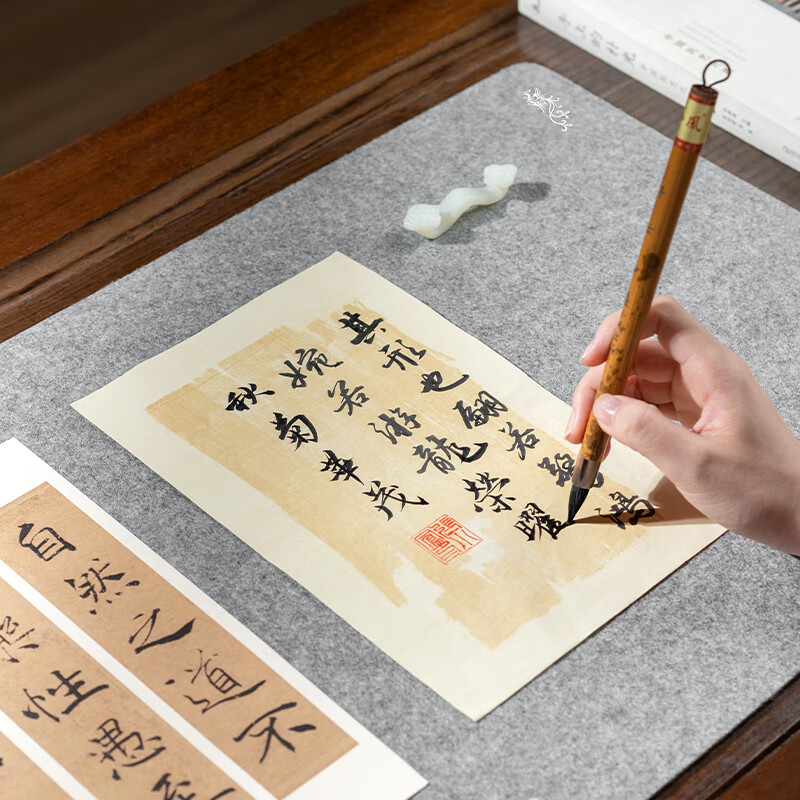 其形也翩若驚鴻
婉若游龍榮曜
秋菊華茂
自然之道不
性愚
風